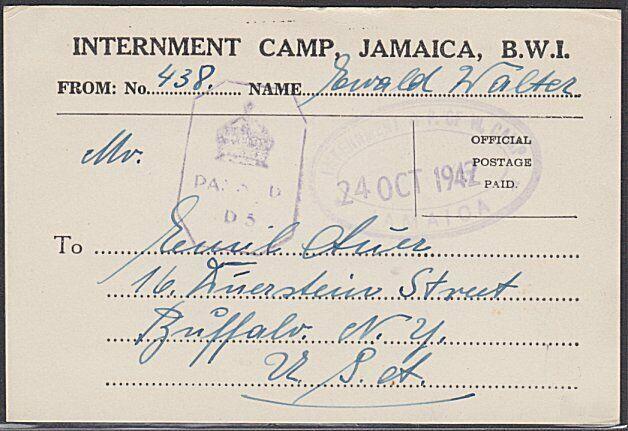 INTERNMENT CAMP, JAMAICA, B.W.I.
FROM: No. 438. NAME Ewald Walter
OFFICIAL
POSTAGE
PAID.
24 OCT 1942
Mr.
D 5
To Emil Auer
16. Duerstein Street
Buffalo. N. Y.
U. S. A.